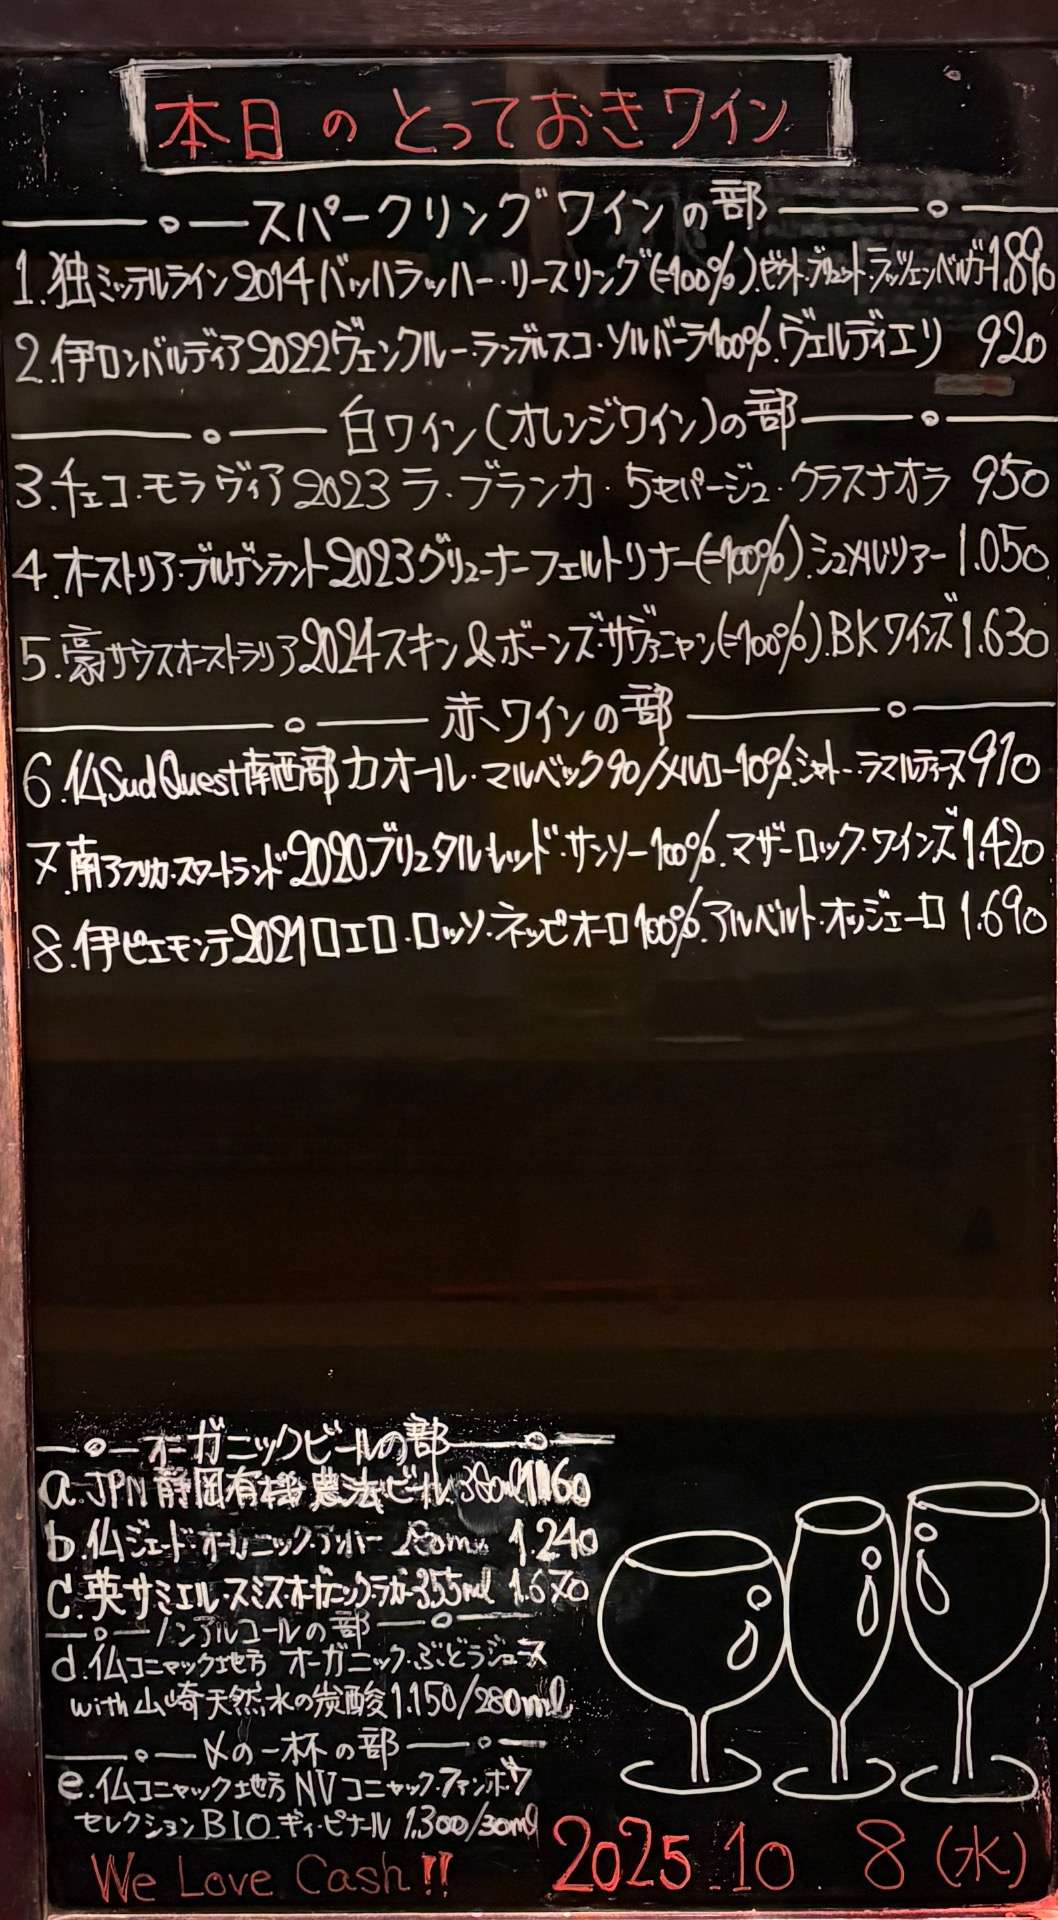 本日のとっておきワイン
スパークリングワインの部
1.独ミッテルライン2014バッハラッハー・リースリング(=100%).ゼクト・ブリュット・ラッツェンベルガー1.890
2.伊ロンバルディア2022ヴェンクルー・ランブルスコ・ソルバーラ100%.ヴェルディエリ 920
白ワイン(オレンジワイン)の部
3.チェコ・モラヴィア2023ラ・ブランカ・5セパージュ・クラスナオラ 950
4.オーストリア・ブルゲンラント2023グリューナーフェルトリナー(=100%).シュメルツァー1.050
5.豪サウスオーストラリア2024スキン&ボーンズ・サヴァニャン(=100%).BKワインズ1.630
赤ワインの部
6.仏Sud Ouest南西部カオール・マルベック90/メルロー10%.シャトー・ラマルティーヌ910
7.南アフリカ・スワートランド2020ブリュタルレッド・サンソー100%.マザーロック・ワインズ1.420
8.伊ピエモンテ2021ロエロ・ロッソ・ネッビオーロ100%.アルベルト・オッジェーロ 1.690
オーガニックビールの部
a.JPN静岡有機農法ビール 1160
b.仏ジェード・オーガニック・アンバー 1.240
c.英サミエル・スミスオーガニックラガー355ml 1.670
ノンアルコールの部
d.仏コニャック地方 オーガニック・ぶどうジュース
with山崎天然水の炭酸1.150/280ml
〆の一杯の部
e.仏コニャック地方NVコニャック・ファンボワ
セレクションBIO.ギィ・ピナール 1.300/30ml
We Love Cash!!
2025.10.8(水)